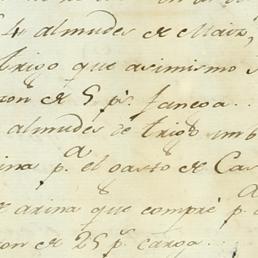 4 almudes de Maiz,
trigo que asimismo s
zon de 5 p.s fanega..
almudes de trigo imb
ina p.a el gasto de Cas
arina que compré p.a
zon de 25 p.s carga...